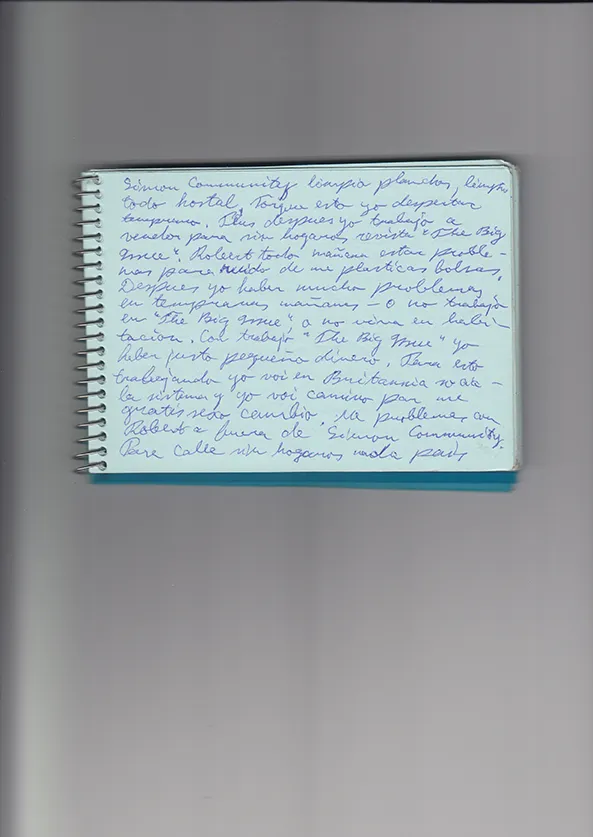 Simon Community limpia planchos, limpia
todo hostal, Porque esto yo despertar
temprano. Plus despues yo trabajo a
vendor para sin hogaros revista "The Big
Issue". Robert todo mañana estar proble-
mas para ruido de me plasticas bolsas,
Despues yo haber mucho problemas
en tempranas mañanas - o no trabajo
en "The Big Issue" o no vivir en habi-
tacion. Con trabajo "The Big Issue" yo
haber justo pequeña dinero. Para esto
trabajando yo voi en Britannia
la sistema y yo voi camino par me
gratis cambio. problemas con
Robert a fuera de Simon Community.
Para calle sin hogaros nada pais